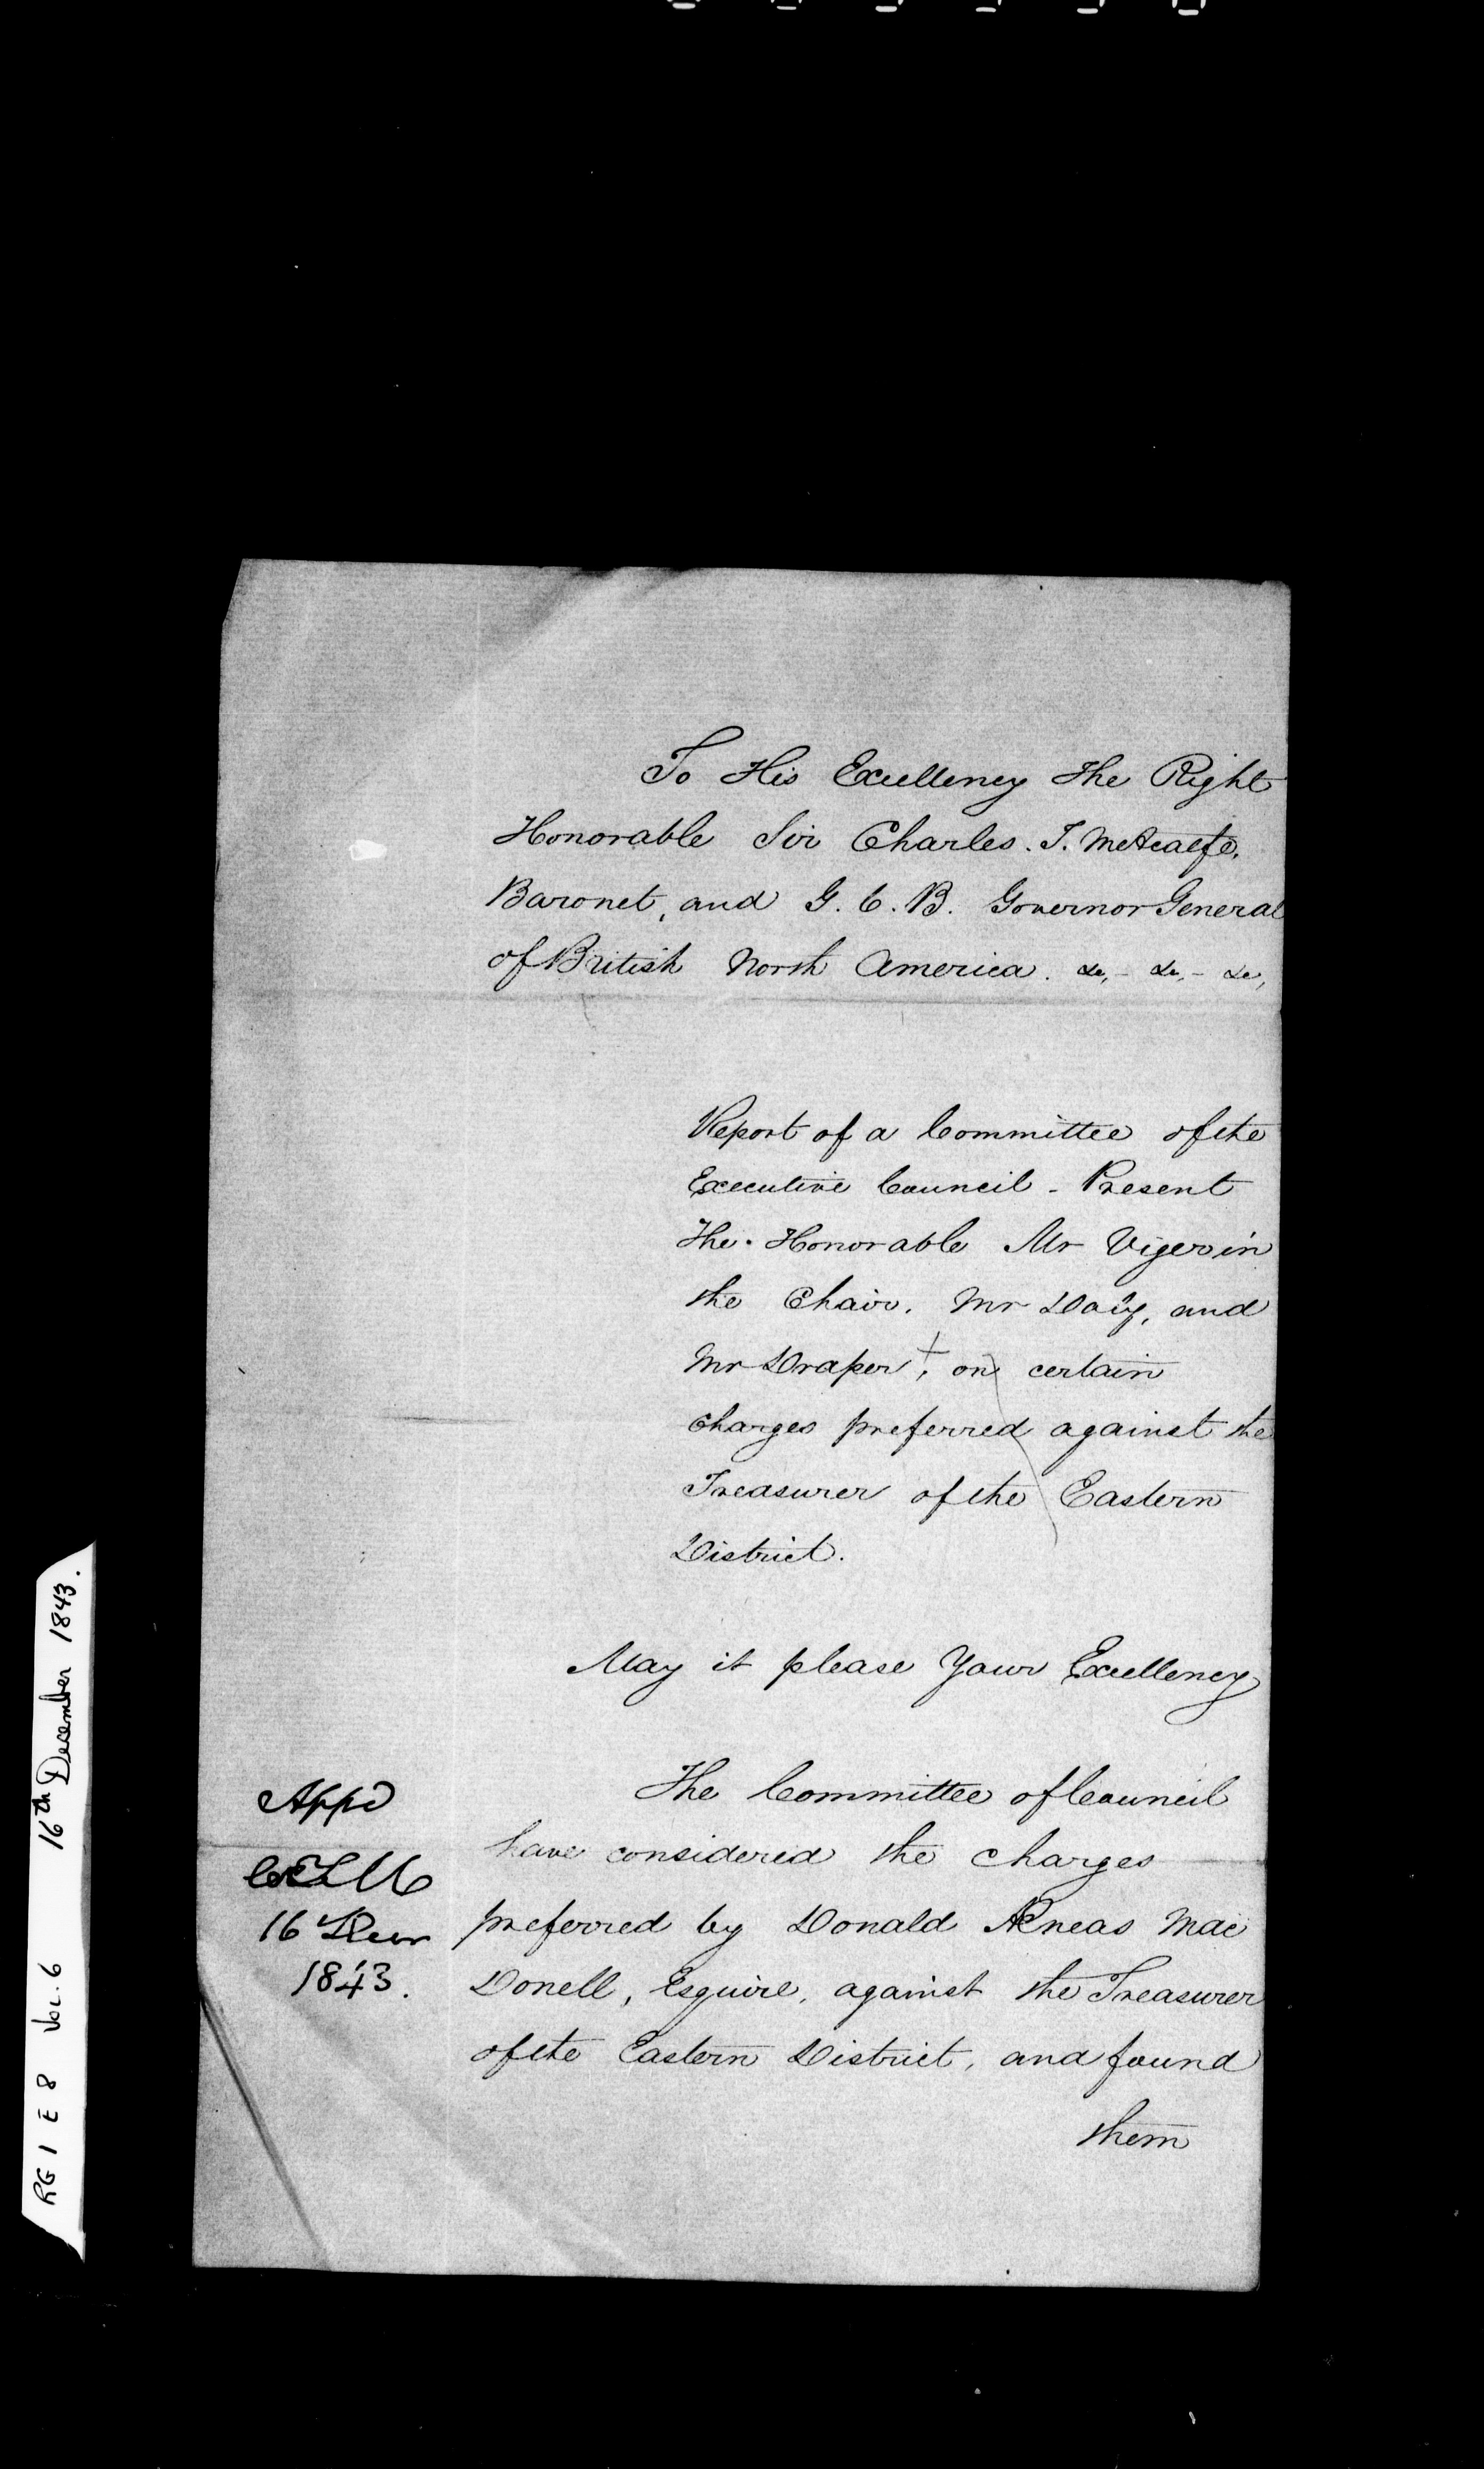 To His Excellency The Right
Honorable Sir Charles. T. Metcalfe.
Baronet, and G. C. B. Governor General
of British North America. &c, - &c, - &c,
Report of a Committee of the
Executive Council - Present
The Honorable Mr Viger in
the Chair, Mr Daly, and
Mr Draper +, on certain
charges preferred against the
Treasurer of the Eastern
District.
May it please Your Excellency
The Committee of Council
have considered the charges
preferred by Donald Æneas Mac
Donell, Esquire, against the Treasurer
of the Eastern District, and found
them
Appd
16 Decr
1843.
RG 1 E 8 Vol. 6 16th December 1843.